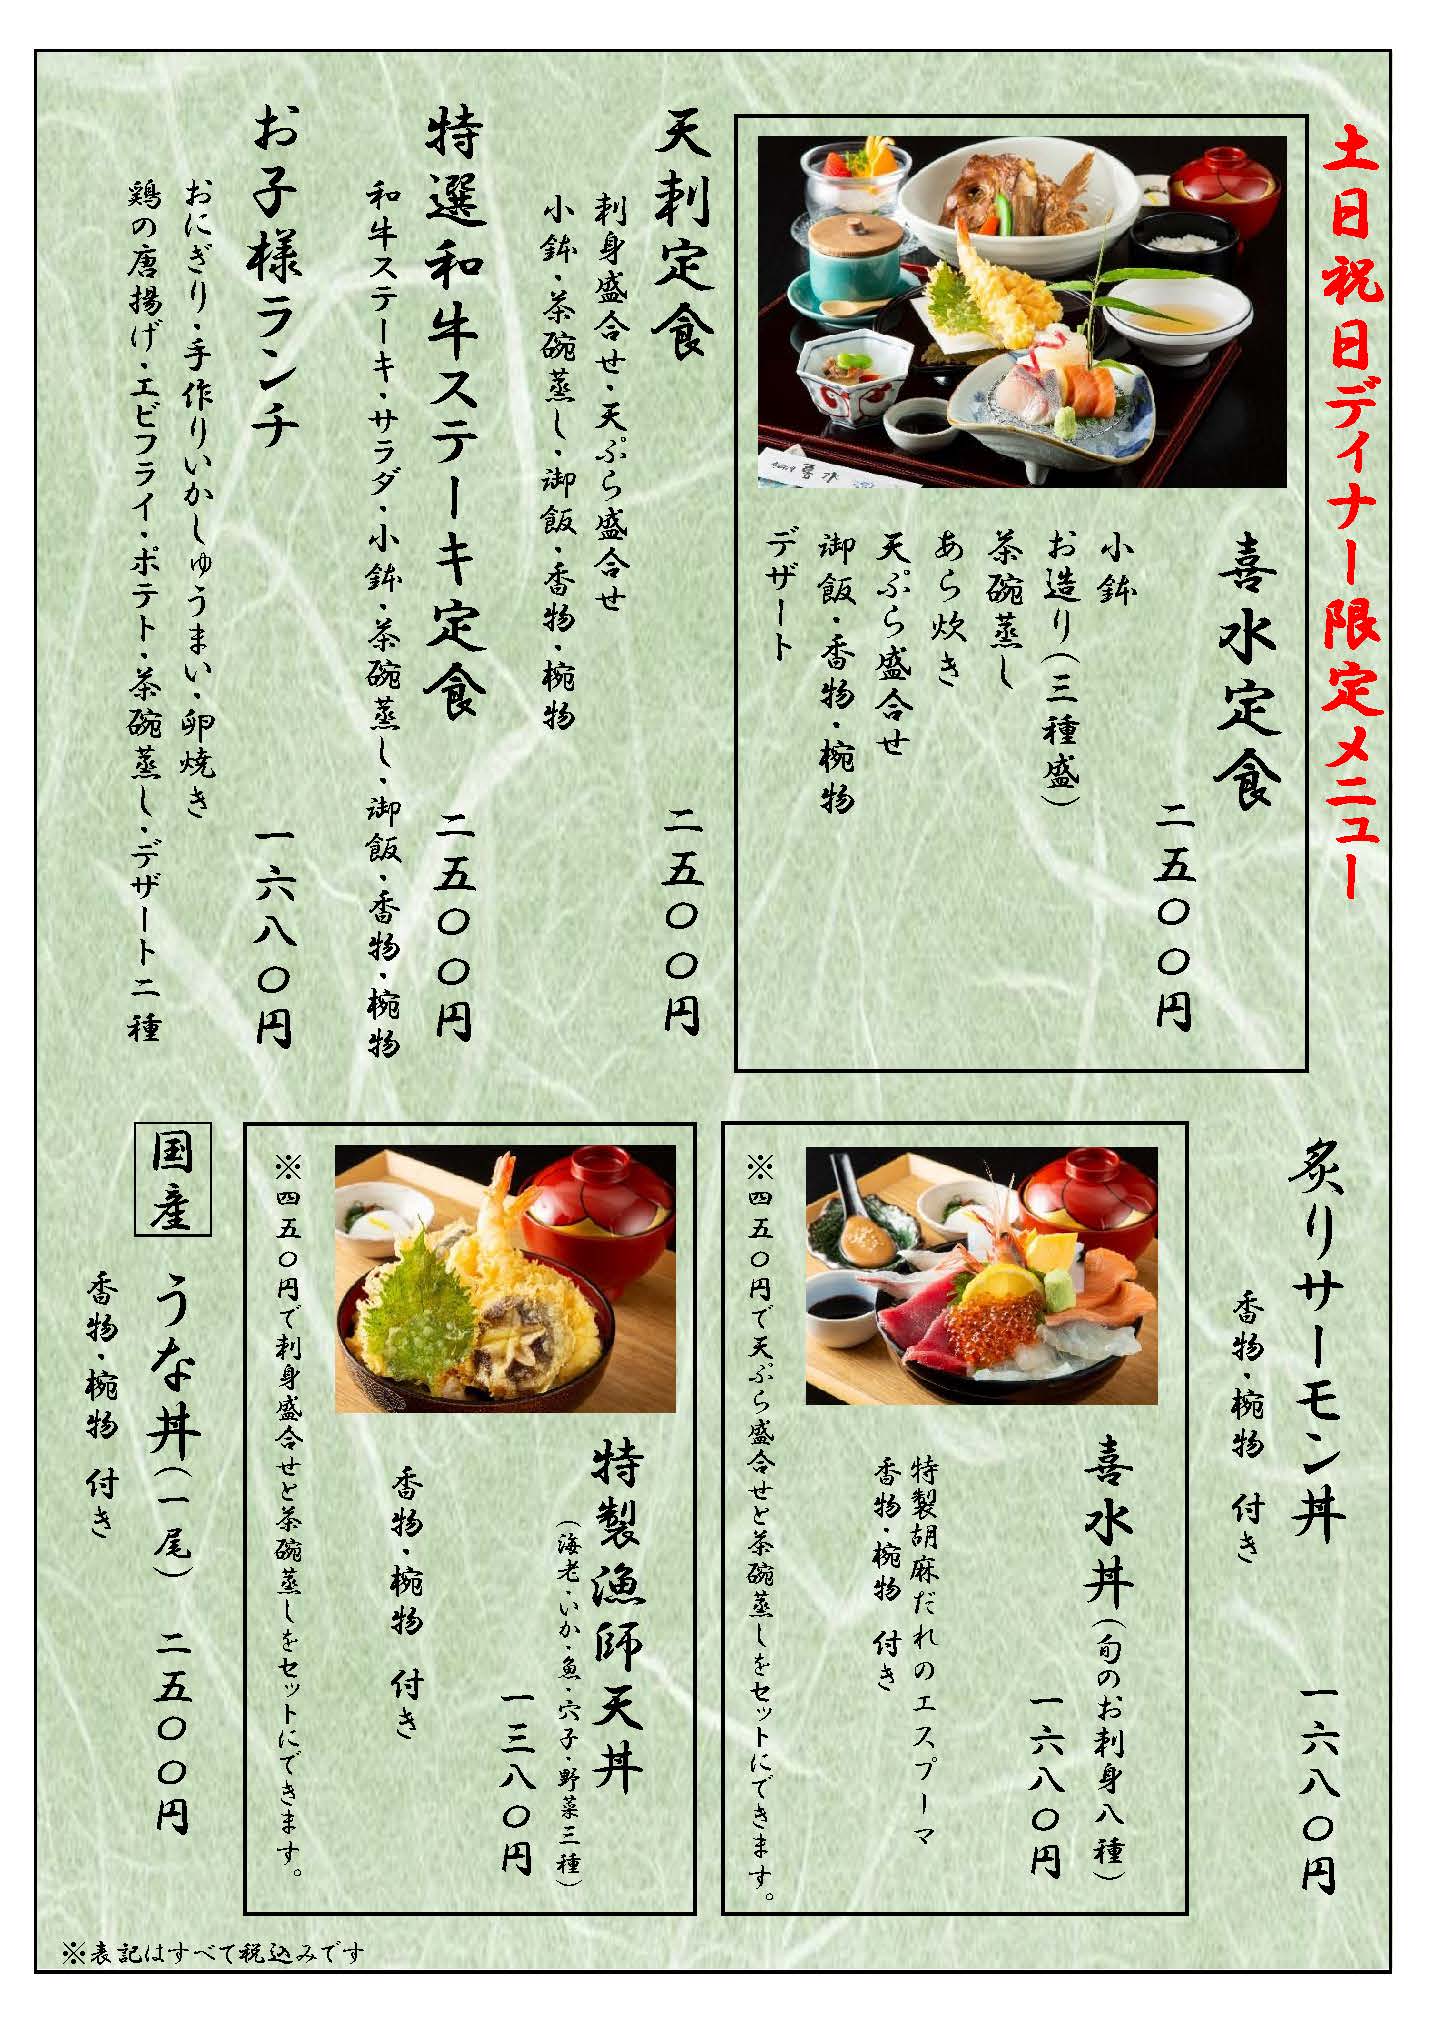 土日祝日ディナー限定メニュー
喜水定食
二五〇〇円
小鉢
お造り(三種盛)
茶碗蒸し
あら炊き
天ぷら盛合せ
御飯・香物・椀物
デザート
喜水
天刺定食
二五〇〇円
刺身盛合せ・天ぷら盛合せ
小鉢・茶碗蒸し・御飯・香物・椀物
特選和牛ステーキ定食
二五〇〇円
和牛ステーキ・サラダ・小鉢・茶碗蒸し・御飯・香物・椀物
お子様ランチ
一六八〇円
おにぎり・手作りいかしゅうまい・卵焼き
鶏の唐揚げ・エビフライ・ポテト・茶碗蒸し・デザート二種
炙りサーモン丼
一六八〇円
香物・椀物 付き
喜水丼(旬のお刺身八種)
一六八〇円
特製胡麻だれのエスプーマ
香物・椀物 付き
※四五〇円で天ぷら盛合せと茶碗蒸しをセットにできます。
特製漁師天丼
(海老・いか・魚・穴子・野菜三種)
一三八〇円
香物・椀物 付き
※四五〇円で刺身盛合せと茶碗蒸しをセットにできます。
国産 うな丼(一尾) 二五〇〇円
香物・椀物 付き
※表記はすべて税込みです